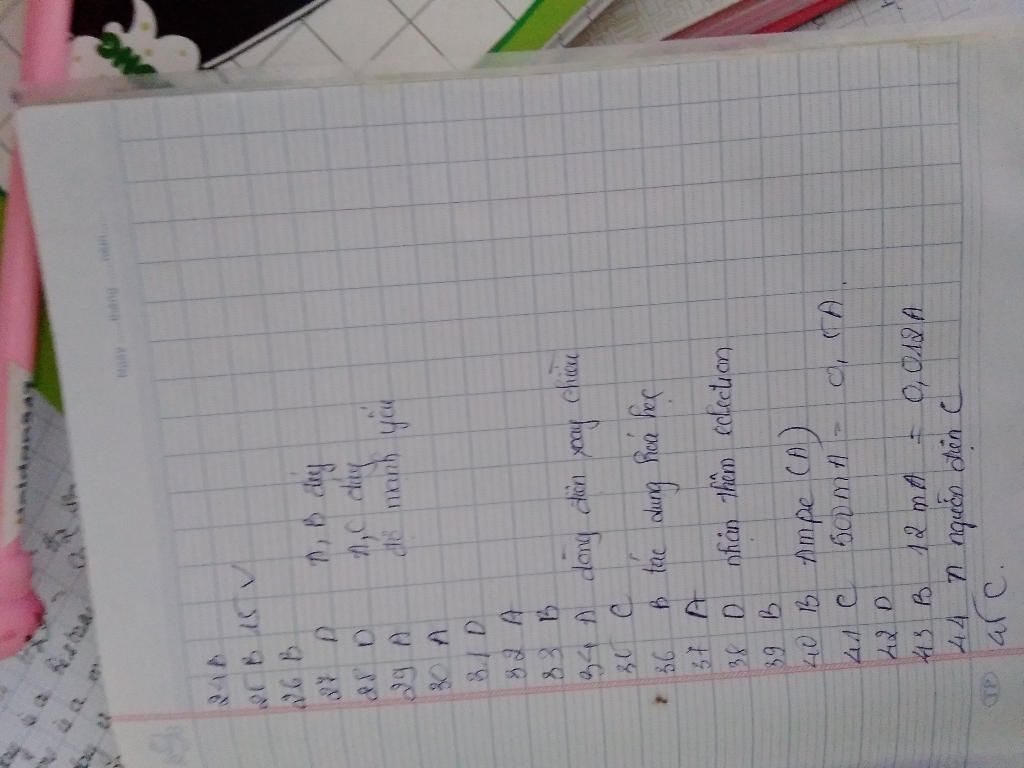 24 B
25 B 15 V
26 B
27 D A, B đúng
28 D A, C đúng
29 A độ mạnh yếu
30 A
31 D
32 A
33 B
34 A dòng điện xoay chiều
35 C
36 B tác dụng hoá học
37 A
38 D nhận thêm eclection
39 B
40 B Ampe (A)
41 C 500mA = 0,5A.
42 D
43 B 12mA = 0,012A
44 A nguồn điện C
45 C.